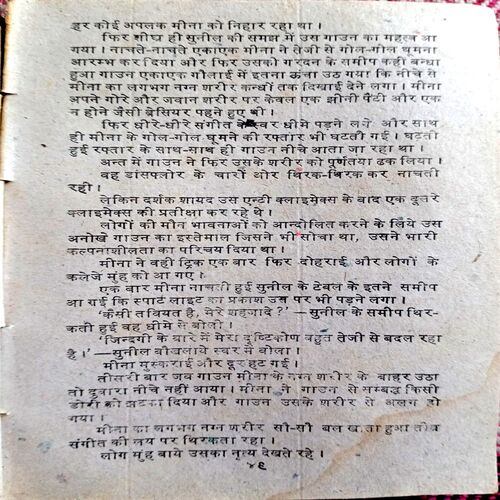 हर कोई अपलक मीना को निहार रहा था ।
फिर शीघ्र ही सुनील की समझ में उस गाउन का महत्व आ
गया । नाचते-नाचते एकाएक मीना ने तेजी से गोल-गोल घूमना
आरम्भ कर दिया और फिर उसकी गरदन के समीप कहीं बन्धा
हुआ गाउन एकाएक गौलाई में इतना ऊंचा उठ गया कि नीचे से
मीना का लगभग नग्न शरीर कन्धों तक दिखाई देने लगा । मीना
अपने गोरे और जवान शरीर पर केवल एक झीनी पैंटी और एक
न होने जैसी ब्रेसियर पहने हुए थी ।
फिर धीरे-धीरे संगीत के स्वर धीमे पड़ने लगे और साथ
ही मीना के गोल-गोल घूमने की रफ्तार भी घटती गई । घटती
हुई रफ्तार के साथ-साथ ही गाउन नीचे आता जा रहा था ।
अन्त में गाउन ने फिर उसके शरीर को पूर्णतया ढक लिया ।
वह डांसफ्लोर के चारों ओर थिरक-थिरक कर नाचती
रही ।
लेकिन दर्शक शायद उस एन्टी क्लाइमेक्स के बाद एक दूसरे
क्लाइमेक्स की प्रतीक्षा कर रहे थे ।
लोगों की मौन भावनाओं को आन्दोलित करने के लिये उस
अनोखे गाउन का इस्तेमाल जिसने भी सोचा था, उसने भारी
कल्पनाशीलता का परिचय दिया था ।
मीना ने वही ट्रिक एक बार फिर दोहराई और लोगों के
कलेजे मुंह को आ गए ।
एक बार मीना नाचती हुई सुनील के टेबल के इतने समीप
आ गई कि स्पाट लाइट का प्रकाश उस पर भी पड़ने लगा ।
'कैसी तबियत है, मेरे शहजादे ?' —सुनील के समीप थिर-
कती हुई वह धीमे से बोली ।
'जिन्दगी के बारे में मेरा दृष्टिकोण बहुत तेजी से बदल रहा
है ।' —सुनील बौखलाये स्वर में बोला ।
मीना मुस्कराई और दूर हट गई ।
तीसरी बार जब गाउन मीना के नग्न शरीर के बाहर उठा
तो दुबारा नीचे नहीं आया । मीना ने गाउन से सम्बद्ध किसी
डोरी को झटका दिया और गाउन उसके शरीर से अलग हो
गया ।
मीना का लगभग नग्न शरीर सौ-सौ बल खाता हुआ तीव्र
संगीत की लय पर थिरकता रहा ।
लोग मुंह बाये उसका नृत्य देखते रहे ।
४९